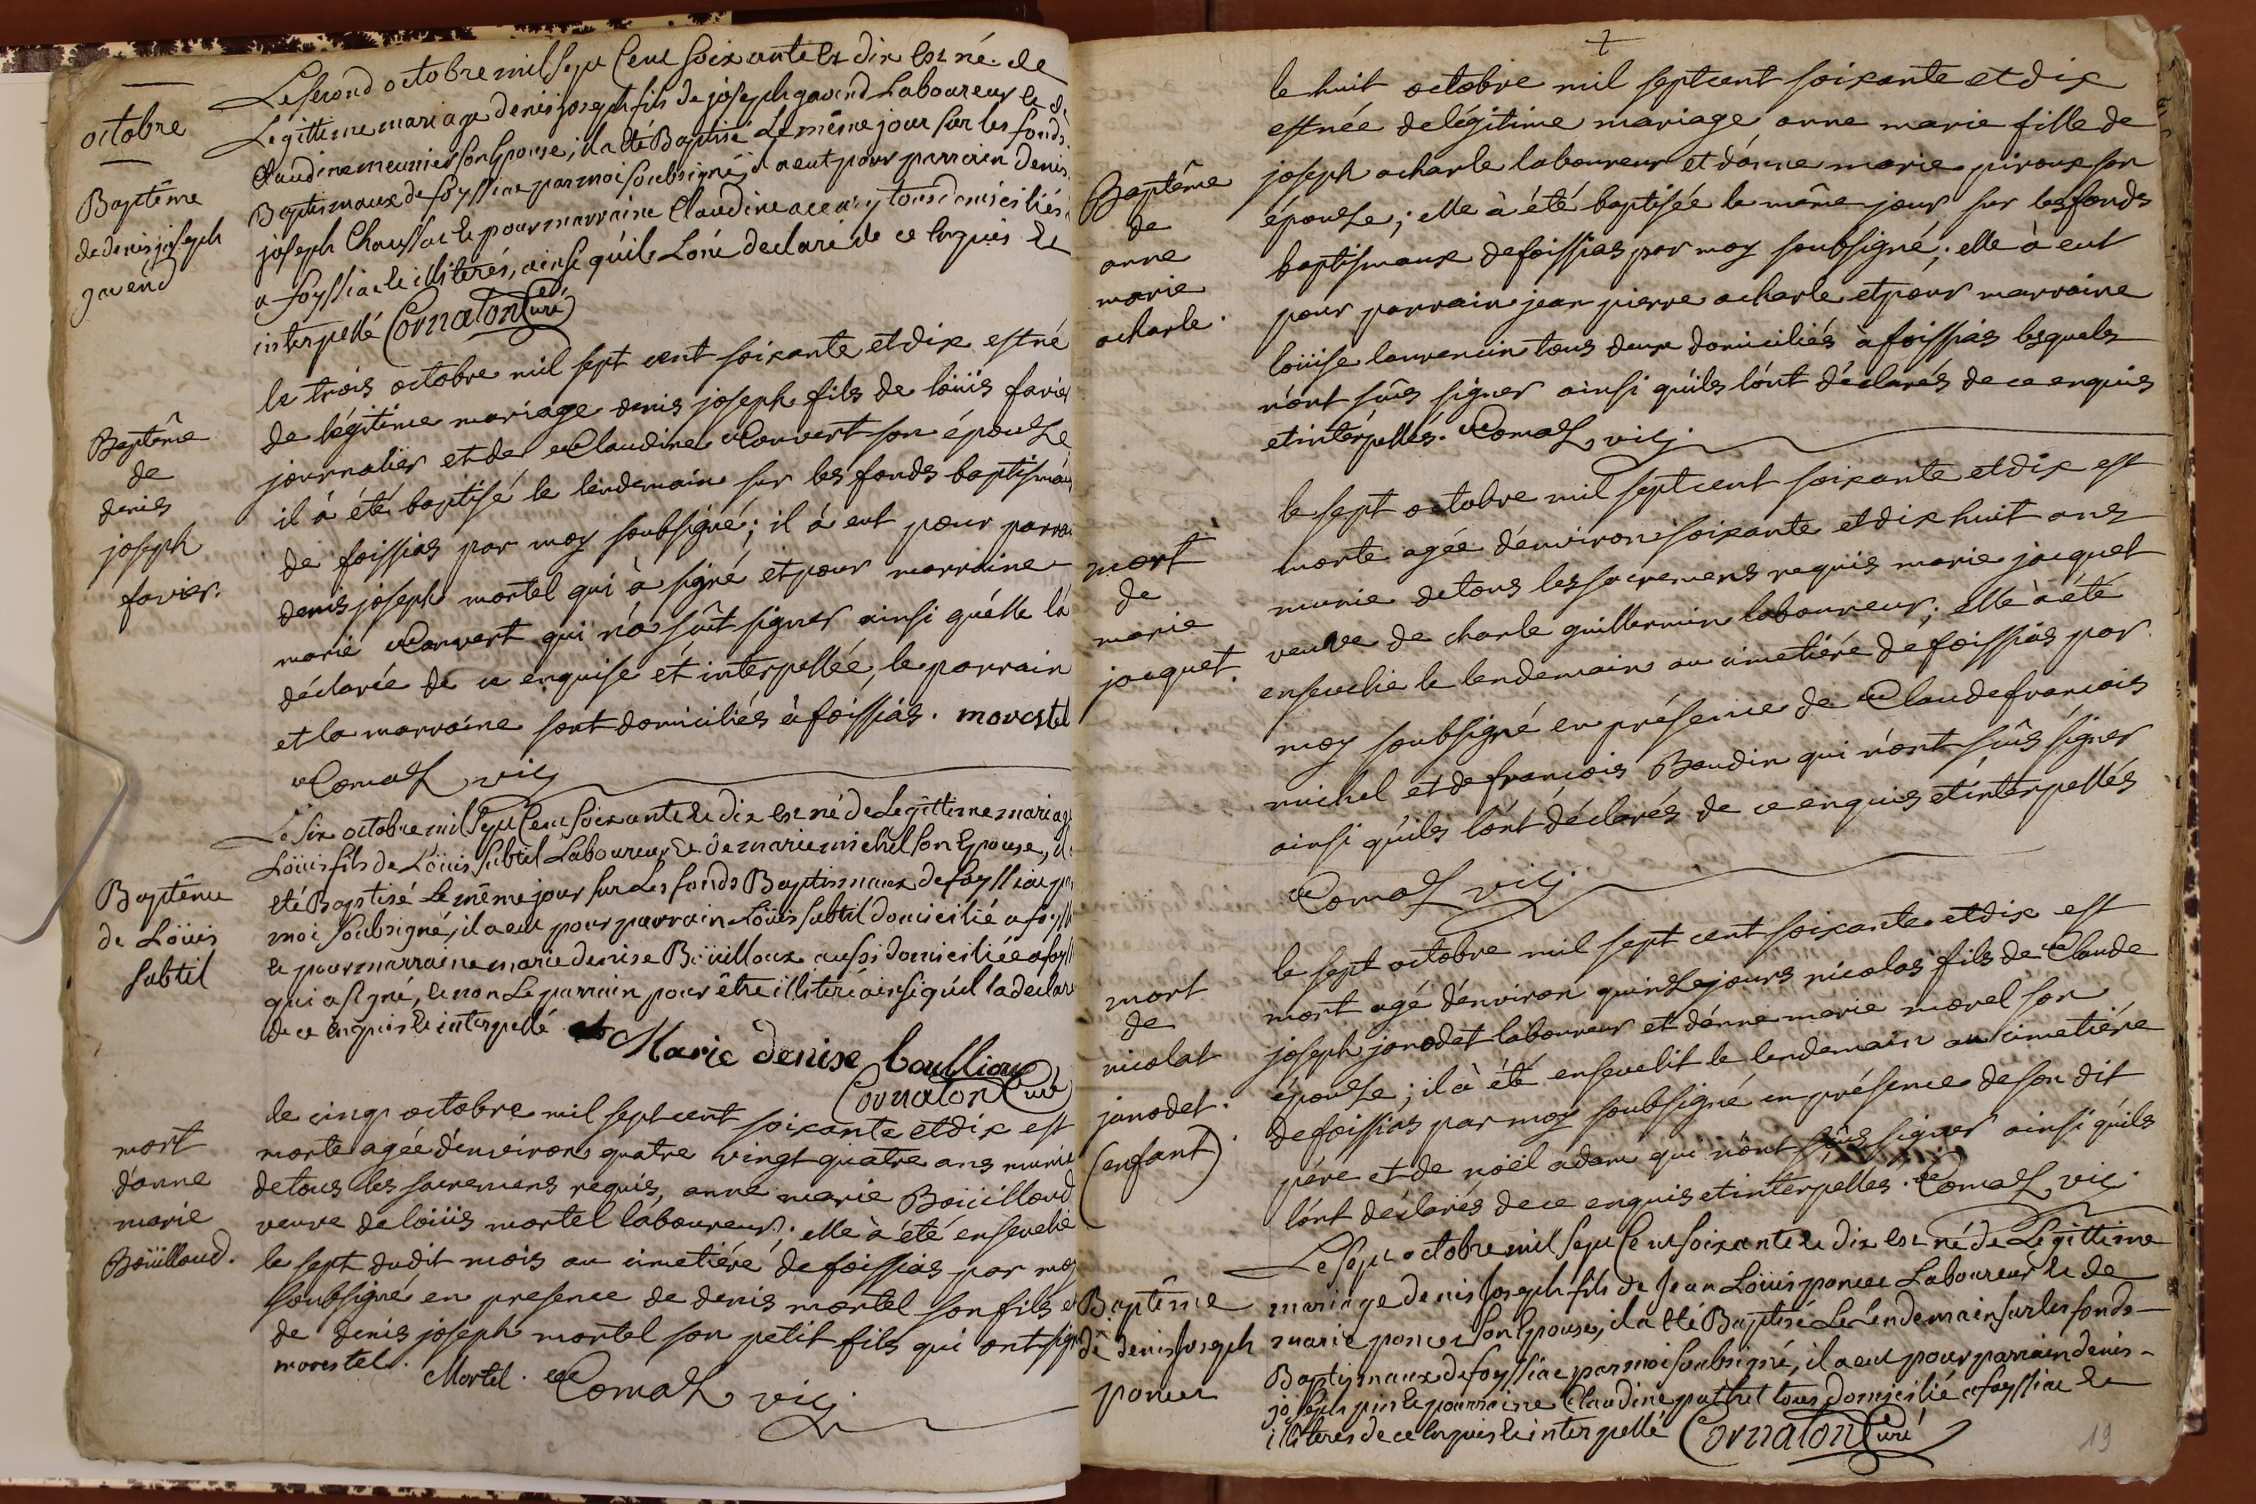 octobre
Baptême
de denis joseph
gavend
Le second octobre mil sept Cent soixante et dix est né de
Legittime mariage denis joseph fils de joseph gavend Laboureur et de
Claudine meunier son Epouse, il a été Baptisé Le même jour sur les fonds
Baptismaux de foyssiac par moi soubsigné, il a eut pour parrain denis
joseph Chaussat et pour marraine Claudine tous domiciliés
a foyssiac et illiterés, ainsi qu'ils L'ont declaré de ce Enquis et
interpellé Cornaton Curé
Baptême
de
denis
joseph
favier.
le trois octobre mil sept cent soixante et dix est né
de légitime mariage denis joseph fils de loüis favier
journalier et de Claudine Convert son épouse
il à été baptisé le lendemain sur les fonds baptismaux
de foissias par moy soubsigné; il à eut pour parrai
denis joseph mortel qui à signé et pour marraine
marie Convert qui n'a sçût signer ainsi qu'elle l'a
déclarée de ce enquise et interpellée, le parrain
et la marraine sont domiciliés à foissias. morestel
Comas vic
Baptême
de Loüis
subtil
Le six octobre mil sept Cent soixante et dix est né de Legittime mariage
Loüis fils de Loüis subtil Laboureur et de marie michel son Epouse, il a
été Baptisé Le même jour sur Les fonds Baptismaux de foyssiac par
moi soubsigné, il a eu pour parrain Loüis subtil domicilié a foyss
et pour marraine marie denise Boüilloux aussi domiciliée a foyss
qui a signé, et non Le parrain pour être illiteré ainsi qu'il la declaré
de ce enquis et interpellé
Marie denise boullioux
Cornaton Curé
mort
d'anne
marie
Boüilloud.
le cinq octobre mil sept cent soixante et dix est
morte agée d'environ quatre vingt quatre ans munie
de tous les sacremens requis, anne marie Boüilloud
veuve de loüis mortel laboureur; elle à été ensevelie
le sept dudit mois au cimetiére de foissias par moy
soubsigné en presence de denis mortel son fils et
de denis joseph mortel son petit fils qui ont signé
morestel. Mortel. Comas vic
le huit octobre mil sept cent soixante et dix
Baptême
de
anne
marie
acharle.
est née de légitime mariage anne marie fille de
joseph acharle laboureur et d'anne marie piroux son
épouse; elle à été baptisée le même jour sur les fonds
baptismaux de foissias par moy soubsigné; elle à eut
pour parrain jean pierre acharle et pour marraine
loüise laurencin tous deux domiciliés à foissias lesquels
n'ont sçûs signer ainsi qu'ils l'ont déclarés de ce enquis
et intérpellés. Comas vic
mort
de
marie
jacquet.
le sept octobre mil sept cent soixante et dix est
morte agée d'environ soixante et dix huit ans
munie de tous les sacremens requis marie jacquet
veuve de charle guillermin laboureur; elle à été
ensevelie le lendemain au cimetiére de foissias par
moy soubsigné en présence de Claude françois
michel et de françois Baudin qui n'ont sçûs signer
ainsi qu'ils l'ont déclarés de ce enquis et intérpellés
Comas vic
mort
de
nicolat
janodet.
(enfant)
le sept octobre mil sept cent soixante et dix est
mort agé d'environ quinse jours nicolas fils de Claude
joseph janodet laboureur et d'anne marie morel son
épouse; il à été ensevelit le lendemain au cimetiére
de foissias par moy soubsigné en présence de son dit
pére et de noël adam qui n'ont sçûs signer ainsi qu'ils
l'ont déclarés de ce enquis et interpelles. Comas vic.
Baptême
de denis Joseph
poncet
Le sept octobre mil sept Cent soixante et dix est né de Legittime
mariage denis Joseph fils de Jean Loüis poncet Laboureur et de
marie poncet son Epouse, il a été Baptisé Le Lendemain sur les fonds
Baptismaux de foyssiac par moi soubsigné, il a eut pour parrain denis
joseph et pour marraine Claudine tous domicilié a foyssiac et
illiterés de ce Enquis et interpellé Cornaton Curé
19